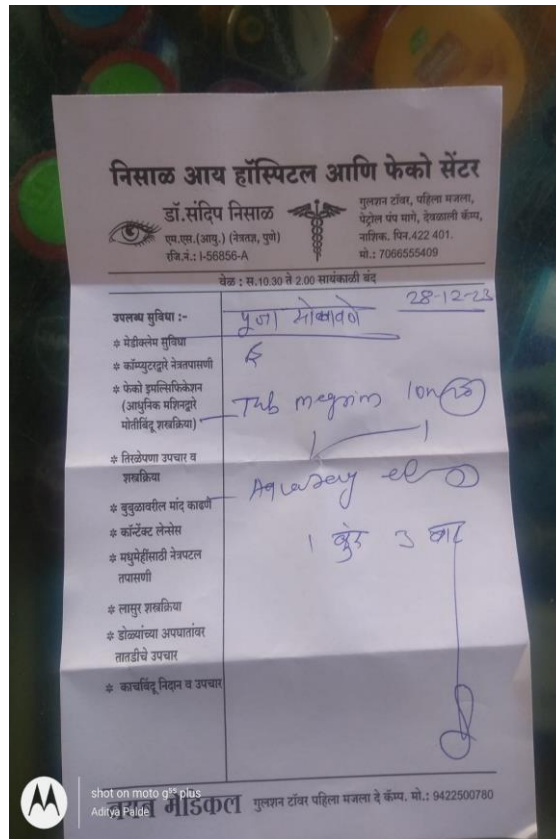 निसाळ आय हॉस्पिटल आणि फेको सेंटर
डॉ.संदिप निसाळ
एम.एस.(आयु.) (नेत्रतज्ञ, पुणे)
रजि.नं.: I-56856-A
गुलशन टॉवर, पहिला मजला,
पेट्रोल पंप मागे, देवळाली कॅम्प,
नाशिक. पिन.422 401.
मो.: 7066555409
वेळ : स.10.30 ते 2.00 सायंकाळी बंद
28-12-23
उपलब्ध सुविधा :-
पूजा
* मेडीक्लेम सुविधा
* कॉम्प्युटरद्वारे नेत्रतपासणी
* फेको इमल्सिफिकेशन
(आधुनिक मशिनद्वारे
मोतीबिंदू शस्त्रक्रिया)
Tab megrim
* तिरळेपणा उपचार व
शस्त्रक्रिया
* बुबुळावरील मांद काढणे
* कॉन्टॅक्ट लेन्सेस
1 बुंद 3 बार
* मधुमेहींसाठी नेत्रपटल
तपासणी
* लासुर शस्त्रक्रिया
* डोळ्यांच्या अपघातांवर
तातडीचे उपचार
* काचबिंदू निदान व उपचार
shot on moto g⁵⁵ plus
Aditya Palde
मेडिकल गुलशन टॉवर पहिला मजला दे कॅम्प. मो.: 9422500780